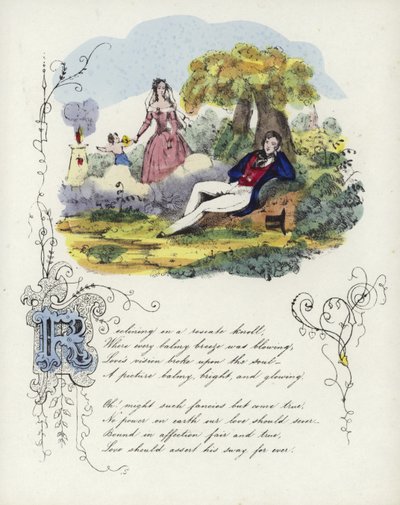 Reclining on a roseate knoll,
Where every balmy breeze was blowing,
Loves vision broke upon the soul–
A picture balmy, bright, and glowing

Oh! might such fancies but come true,
No power on earth our love should sever–
Bound in affection fair and true,
Love should assert his sway for ever.